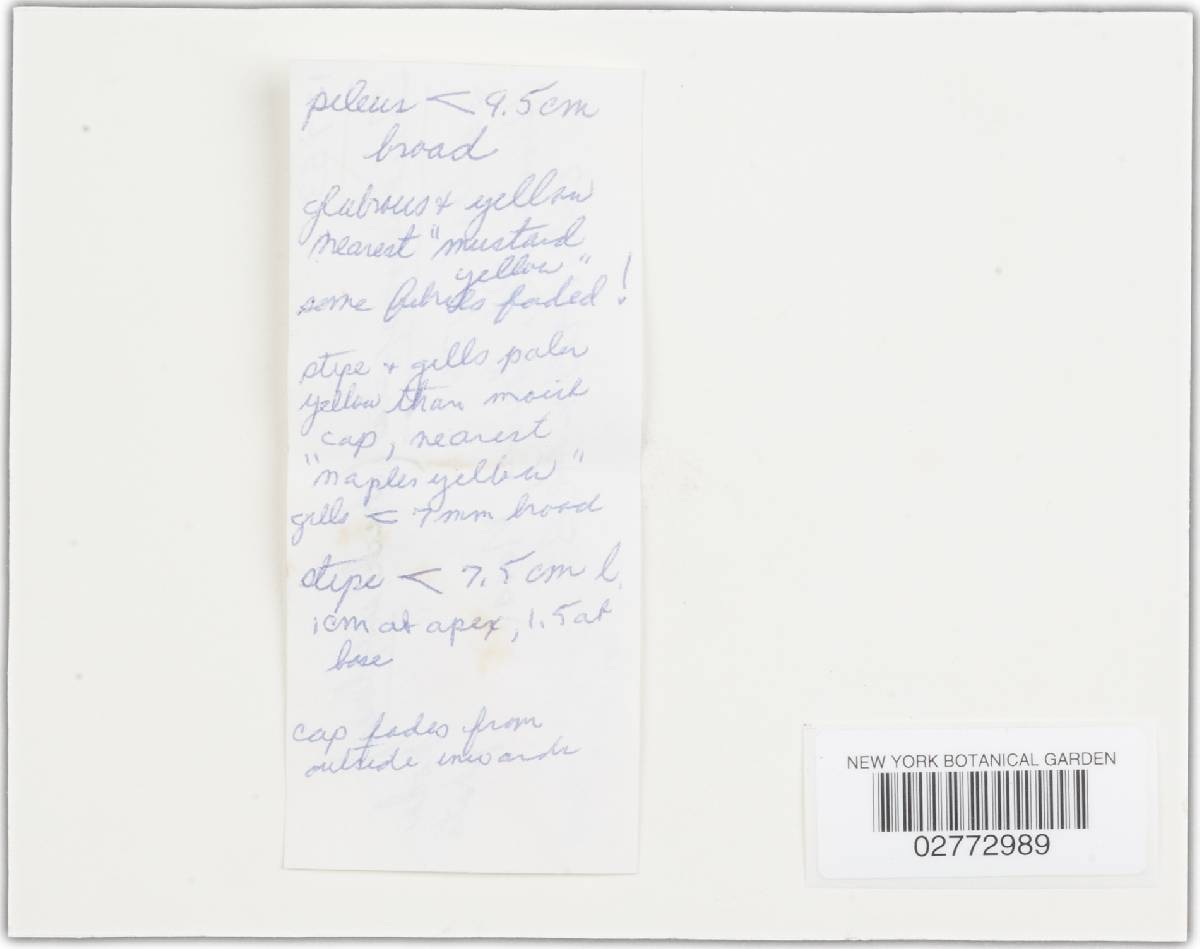 pileus < 9.5 cm
broad
glabrous + yellow
nearest "mustard
yellow"
some fibrils faded!
stipe + gills paler
yellow than moist
cap, nearest
"naples yellow"
gills < 7 mm broad
stipe < 7.5 cm l.
1 cm at apex, 1.5 at
base
cap fades from
outside inwards
NEW YORK BOTANICAL GARDEN
02772989